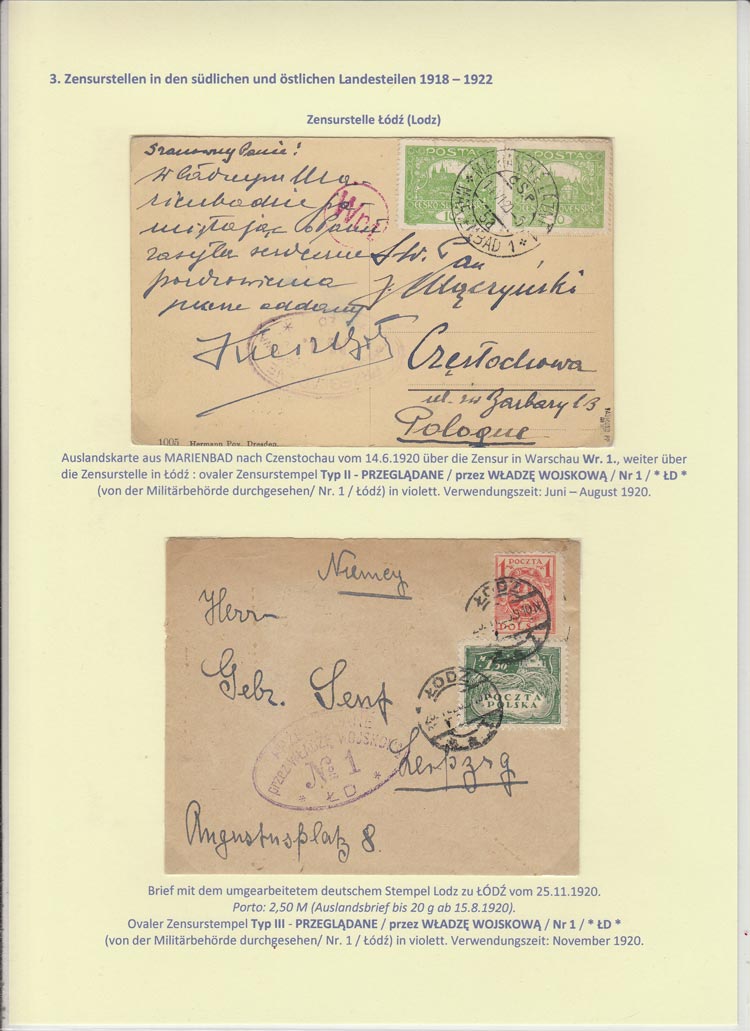 3. Zensurstellen in den südlichen und östlichen Landesteilen 1918 – 1922
Zensurstelle Łódź (Lodz)
Szanowny Panie!
POSTA
POSTA
Wr.1
zasyła serdeczne
pozdrowienia
J. Mączyński
Częstochowa
Pologne
BAD 1 *
1005 Hermann Poy, Dresden.
Auslandskarte aus MARIENBAD nach Czenstochau vom 14.6.1920 über die Zensur in Warschau Wr. 1., weiter über
die Zensurstelle in Łódź : ovaler Zensurstempel Typ II - PRZEGLĄDANE / przez WŁADZĘ WOJSKOWĄ / Nr 1 / * ŁD *
(von der Militärbehörde durchgesehen/ Nr. 1 / Łódź) in violett. Verwendungszeit: Juni – August 1920.
Niemcy
POCZTA
1 1
POLSKA
ŁODZ
Herrn
Gebr. Senf
ŁODZ
1,50
POCZTA
POLSKA
przez WŁADZĘ WOJSKOWĄ
No 1
* ŁD *
Leipzig
Augustusplatz 8.
Brief mit dem umgearbeitetem deutschem Stempel Lodz zu ŁÓDŹ vom 25.11.1920.
Porto: 2,50 M (Auslandsbrief bis 20 g ab 15.8.1920).
Ovaler Zensurstempel Typ III - PRZEGLĄDANE / przez WŁADZĘ WOJSKOWĄ / Nr 1 / * ŁD *
(von der Militärbehörde durchgesehen/ Nr. 1 / Łódź) in violett. Verwendungszeit: November 1920.